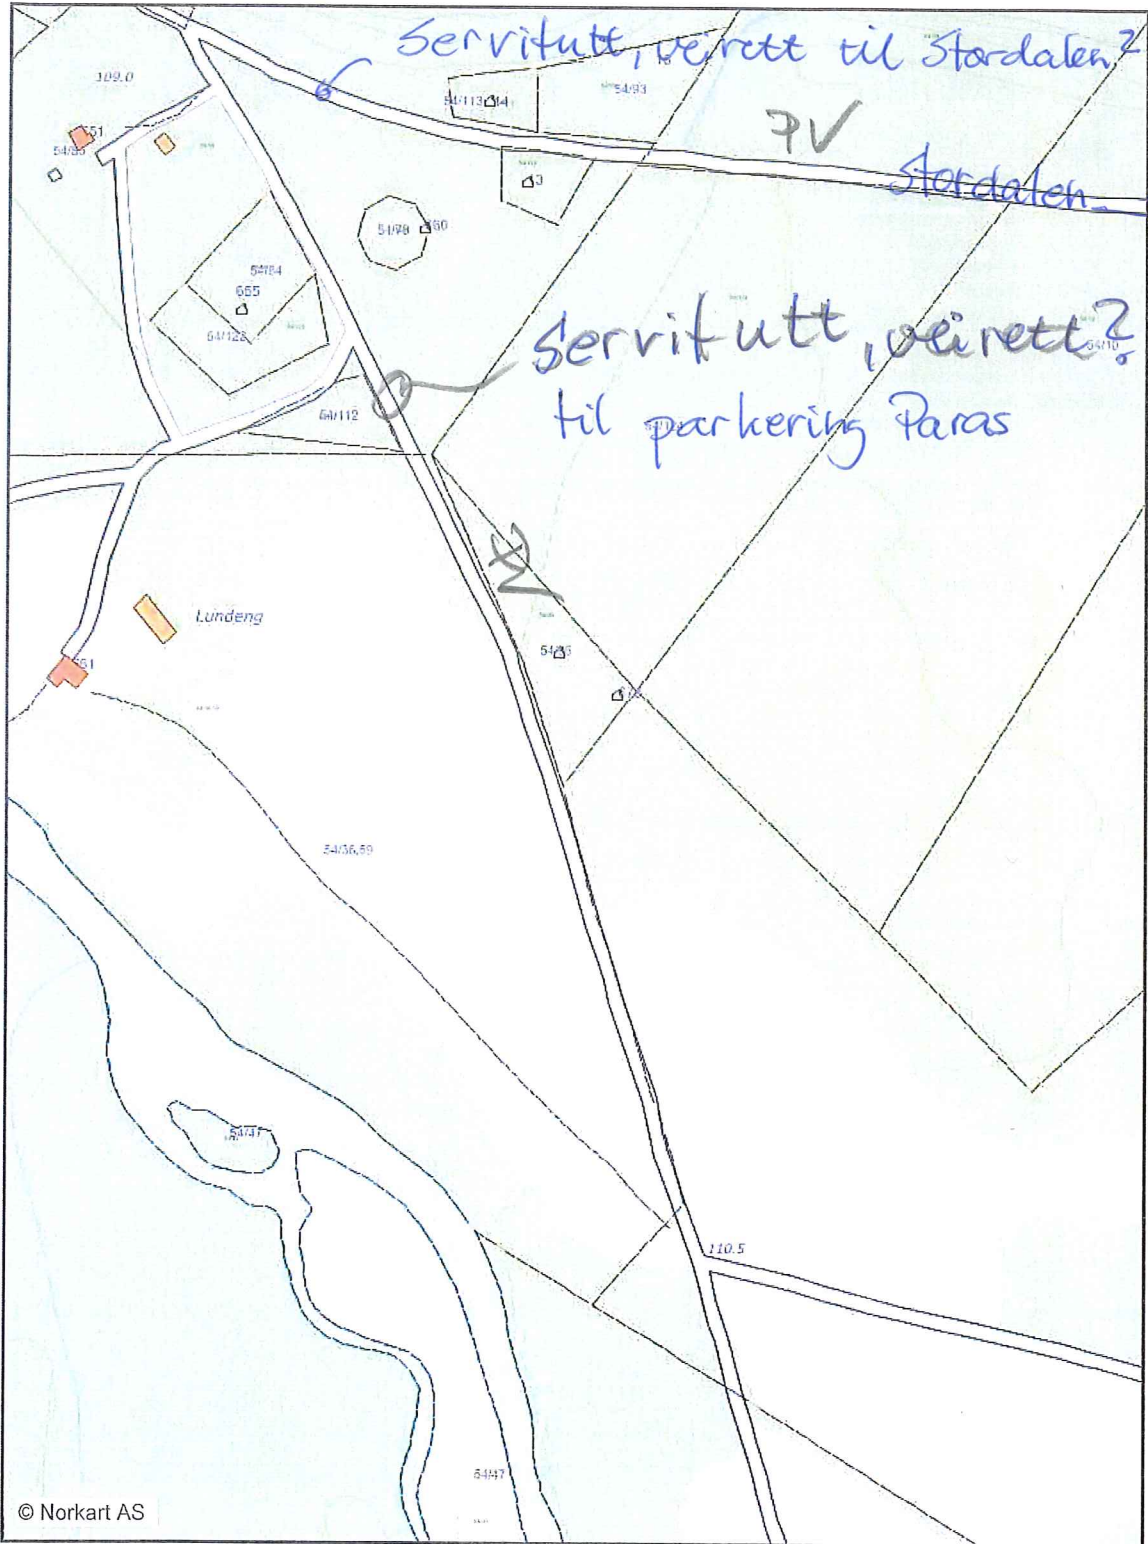 Servitutt, veirett til Stordalen?
109.0
54/113
54/93
PV
Stordalen
54/79
54/84
665
54/122
Servitutt, veirett?
til parkering Paras
54/112
Lundeng
54/36,59
54/41
110.5
54/47
© Norkart AS